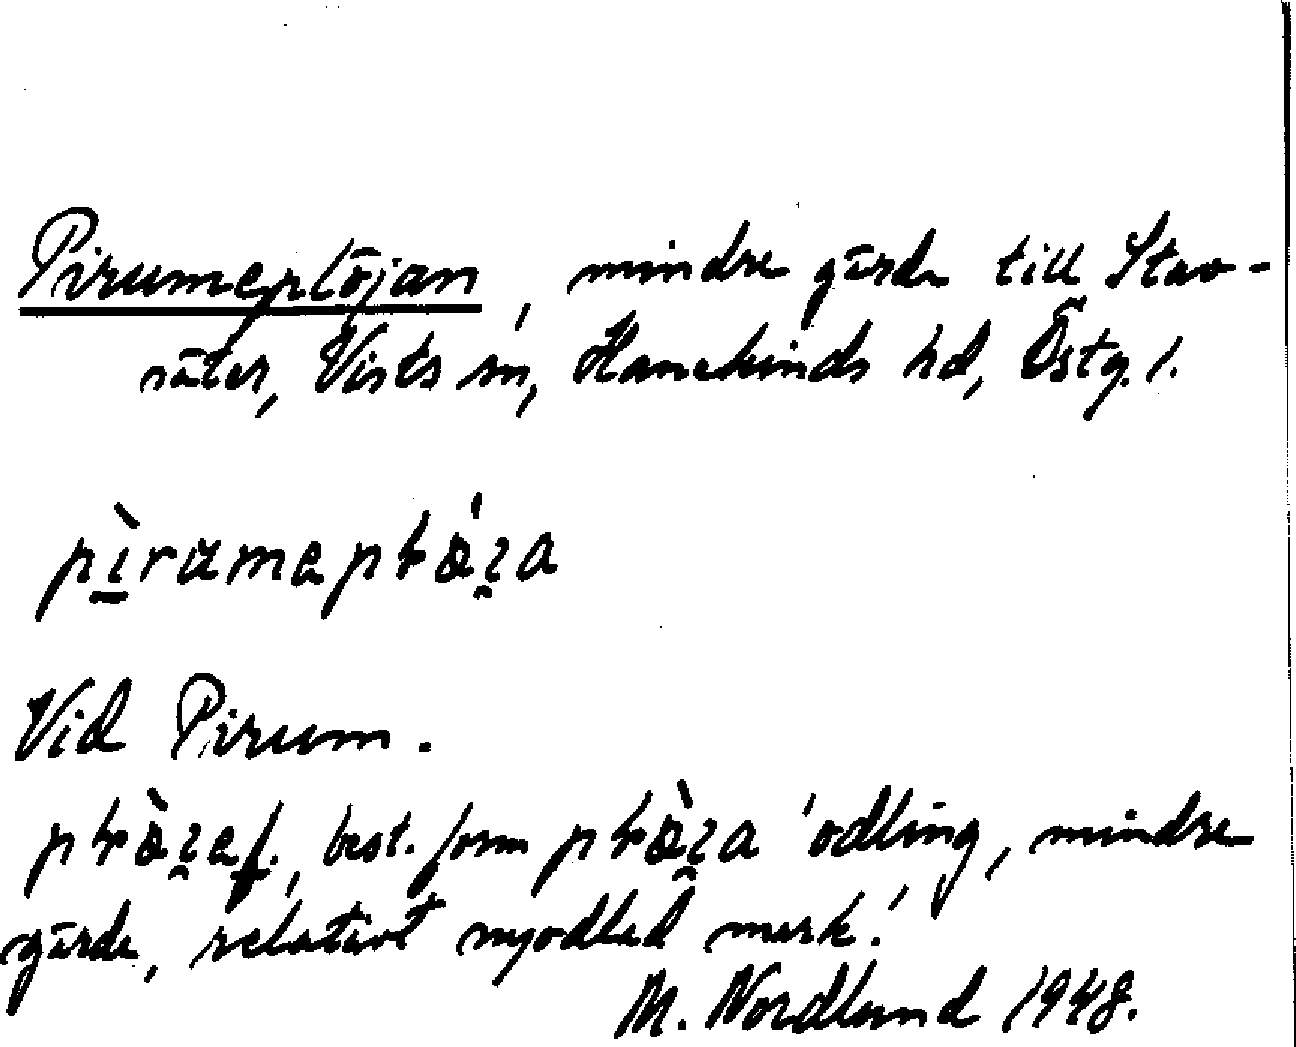 Pirumeplöjan, mindre gärde till Stav-
säter, Vists sn, Hanekinds hd, Östg. l.
Vid Pirum.
f., best. form 'odling, mindre
gärde, relativt nyodlad mark.'
M. Nordlund 1948.